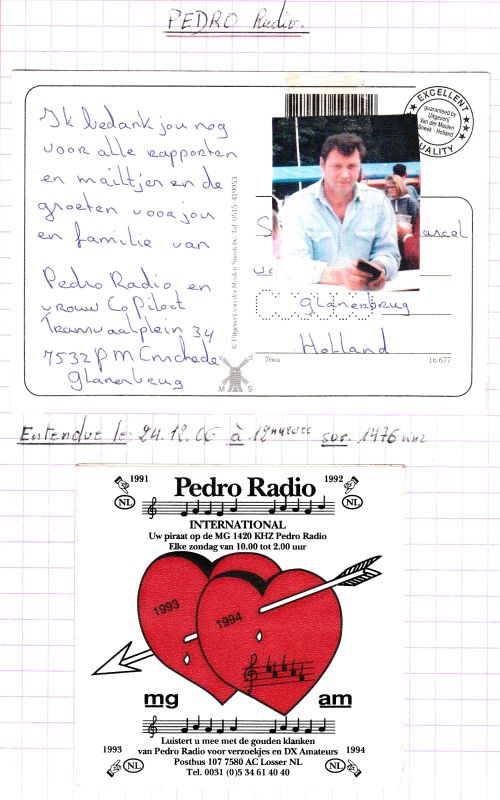 PEDRO Radio.
EXCELLENT
guaranteed by
Uitgeverij
Van der Meulen
Sneek - Holland
QUALITY
Ik bedank jou nog
voor alle rapporten
en mailtjes en de
groeten voor jou
en familie van
Pedro Radio en
vrouw CoPiloot
Transvaalplein 34
7532PM Enschede
Glanerbrug
© Uitgeverij van der Meulen Sneek bv. Tel. 0515-419953
S
arcel
Glanerbrug
Holland
76ea
16.677
M S
Entendue le 24.12.06 à 12
sur 1476
1991
1992
NL
NL
Pedro Radio
INTERNATIONAL
Uw piraat op de MG 1420 KHZ Pedro Radio
Elke zondag van 10.00 tot 2.00 uur
1993
1994
mg
am
Luistert u mee met de gouden klanken
1993
van Pedro Radio voor verzoekjes en DX Amateurs
1994
NL
Postbus 107 7580 AC Losser NL
NL
Tel. 0031 (0)5 34 61 40 40